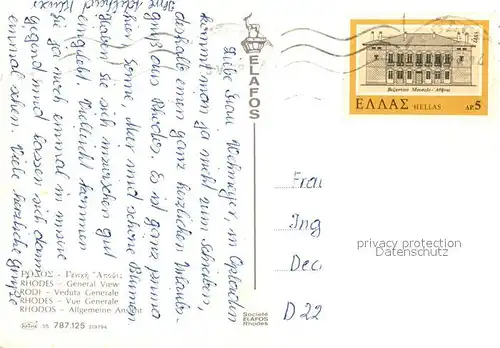 Liebe Frau Wehmeyer, in Opladen
kommt man ja nicht zum Schreiben,
deshalb einen ganz herzlichen Urlaubs-
gruß aus Rhodos. Es ist ganz prima
hier Sonne, Meer und schöne Blumen
Haben Sie sich inzwischen gut
eingelebt. Vielleicht kommen
Sie ja noch einmal in unsere
Gegend und lassen sich dann
einmal sehen. Viele herzliche Grüße
Ihre Adelheid
ELAFOS
Βυζαντινό Μουσείο - Αθήνα
ΕΛΛΑΣ HELLAS ΔΡ. 5
Frau
Ing
Dec
D 22
privacy protection
Datenschutz
ΡΟΔΟΣ - Γενική Ἄποψις
RHODES - General View
RODI - Veduta Generale
RHODES - Vue Generale
RHODOS - Allgemeine Ansicht
35 787.125
Société
ELAFOS
Rhodes